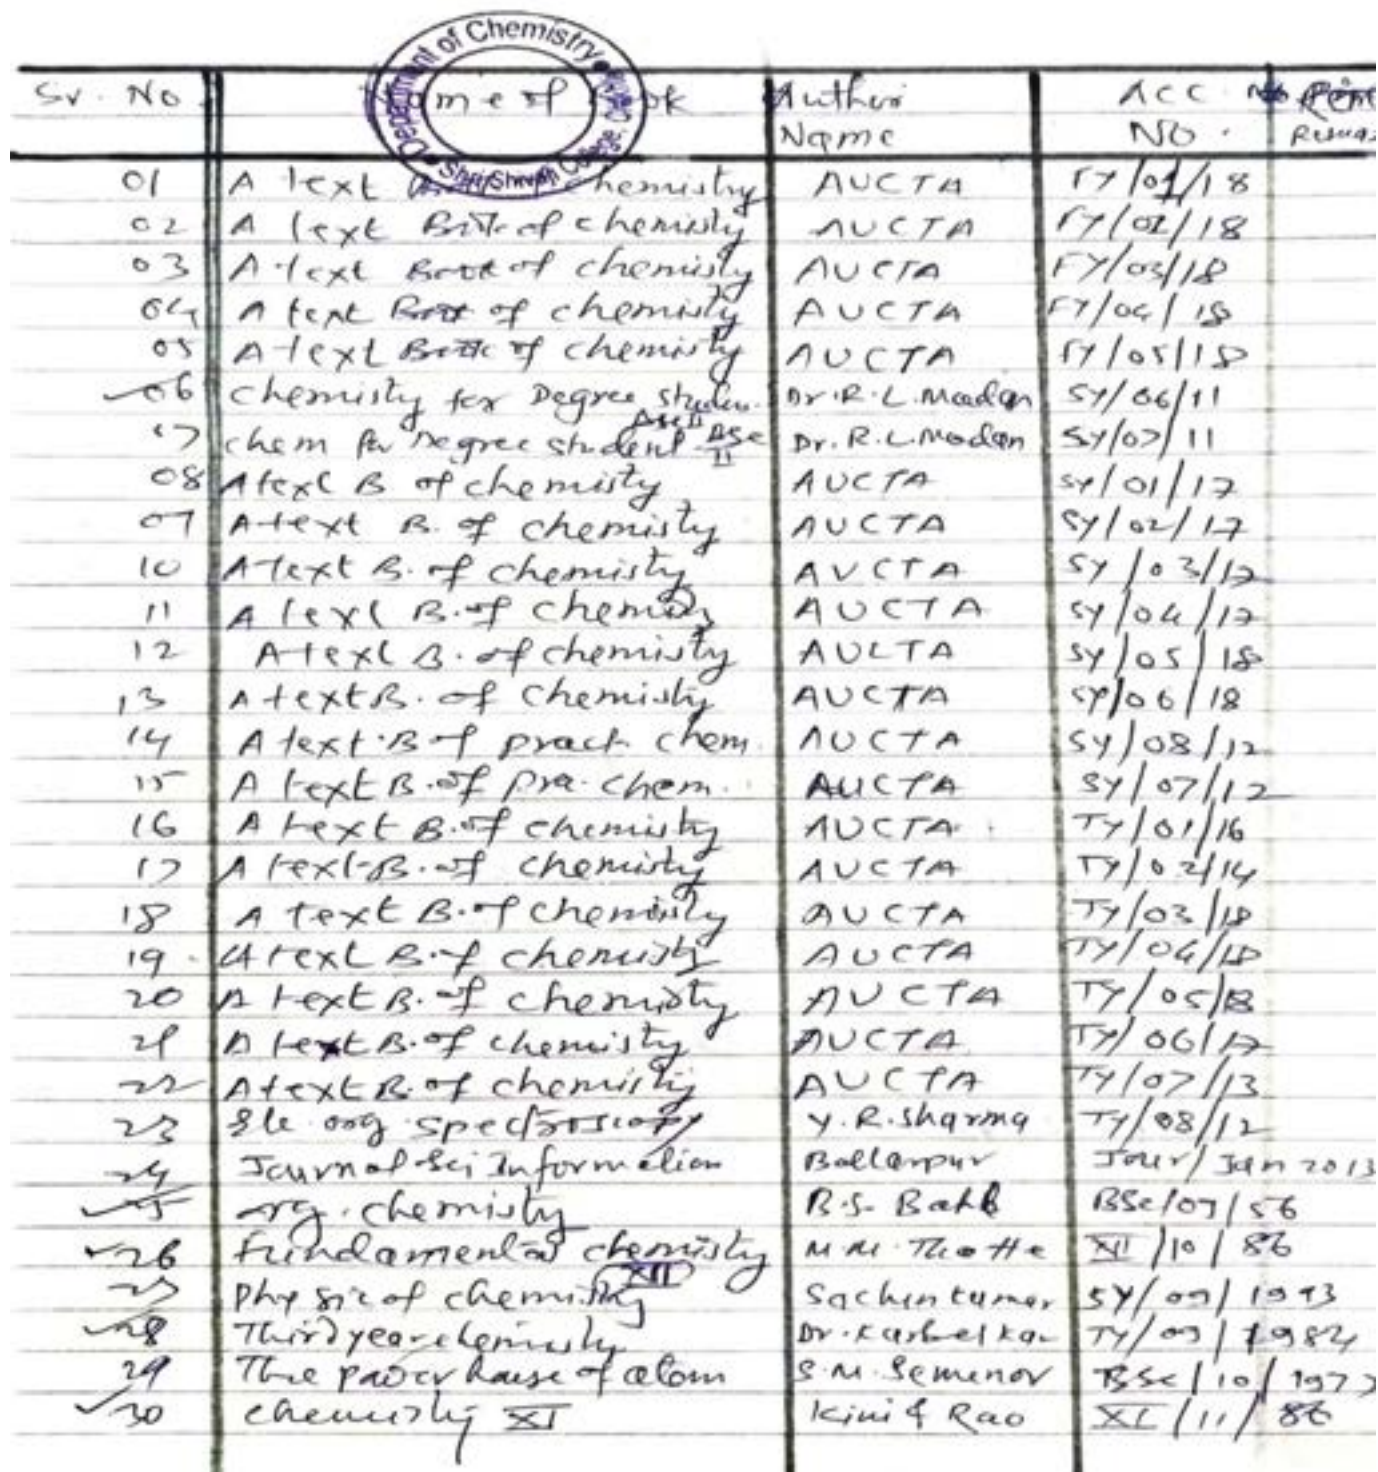 Department of Chemistry
Shri Shivaji College,
Sr. No Name of Book Author Name Acc. No.
01 A text chemistry AUCTA FY/01/18
02 A text Book of chemistry AUCTA FY/02/18
03 A text Book of chemistry AUCTA FY/03/18
04 A text Book of chemistry AUCTA FY/04/18
05 A text Book of chemistry AUCTA FY/05/18
06 chemistry for Degree studen. BSc II Dr. R. L. Madan SY/06/11
07 chem for Degree student BSc II Dr. R. L. Madan SY/07/11
08 A text B of chemistry AUCTA SY/01/17
09 A text B. of chemistry AUCTA SY/02/17
10 A text B. of chemistry AUCTA SY/03/17
11 A text B. of chemistry AUCTA SY/04/17
12 A text B. of chemistry AUCTA SY/05/18
13 A text B. of chemistry AUCTA SY/06/18
14 A text B of pract. chem. AUCTA SY/08/12
15 A text B. of pra. chem. AUCTA SY/07/12
16 A text B. of chemistry AUCTA TY/01/16
17 A text B. of chemistry AUCTA TY/02/14
18 A text B. of chemistry AUCTA TY/03/18
19 A text B. of chemistry AUCTA TY/04/18
20 A text B. of chemistry AUCTA TY/05/18
21 A text B. of chemistry AUCTA TY/06/17
22 A text B. of chemistry AUCTA TY/07/13
23 Ele. org. spectroscopy Y. R. Sharma TY/08/12
24 Journal Sci Information Ballarpur Jour/Jan 2013
25 org. chemistry B.S. Bahl BSc/09/56
26 Fundamental chemistry XII M. M. XII/10/86
27 of chemistry Sachin kumar SY/09/1993
28 Third year chemistry Dr. TY/09/1982
29 The power house of atom S. M. Semenov BSc/10/197
30 chemistry XI Kini & Rao XI/11/86